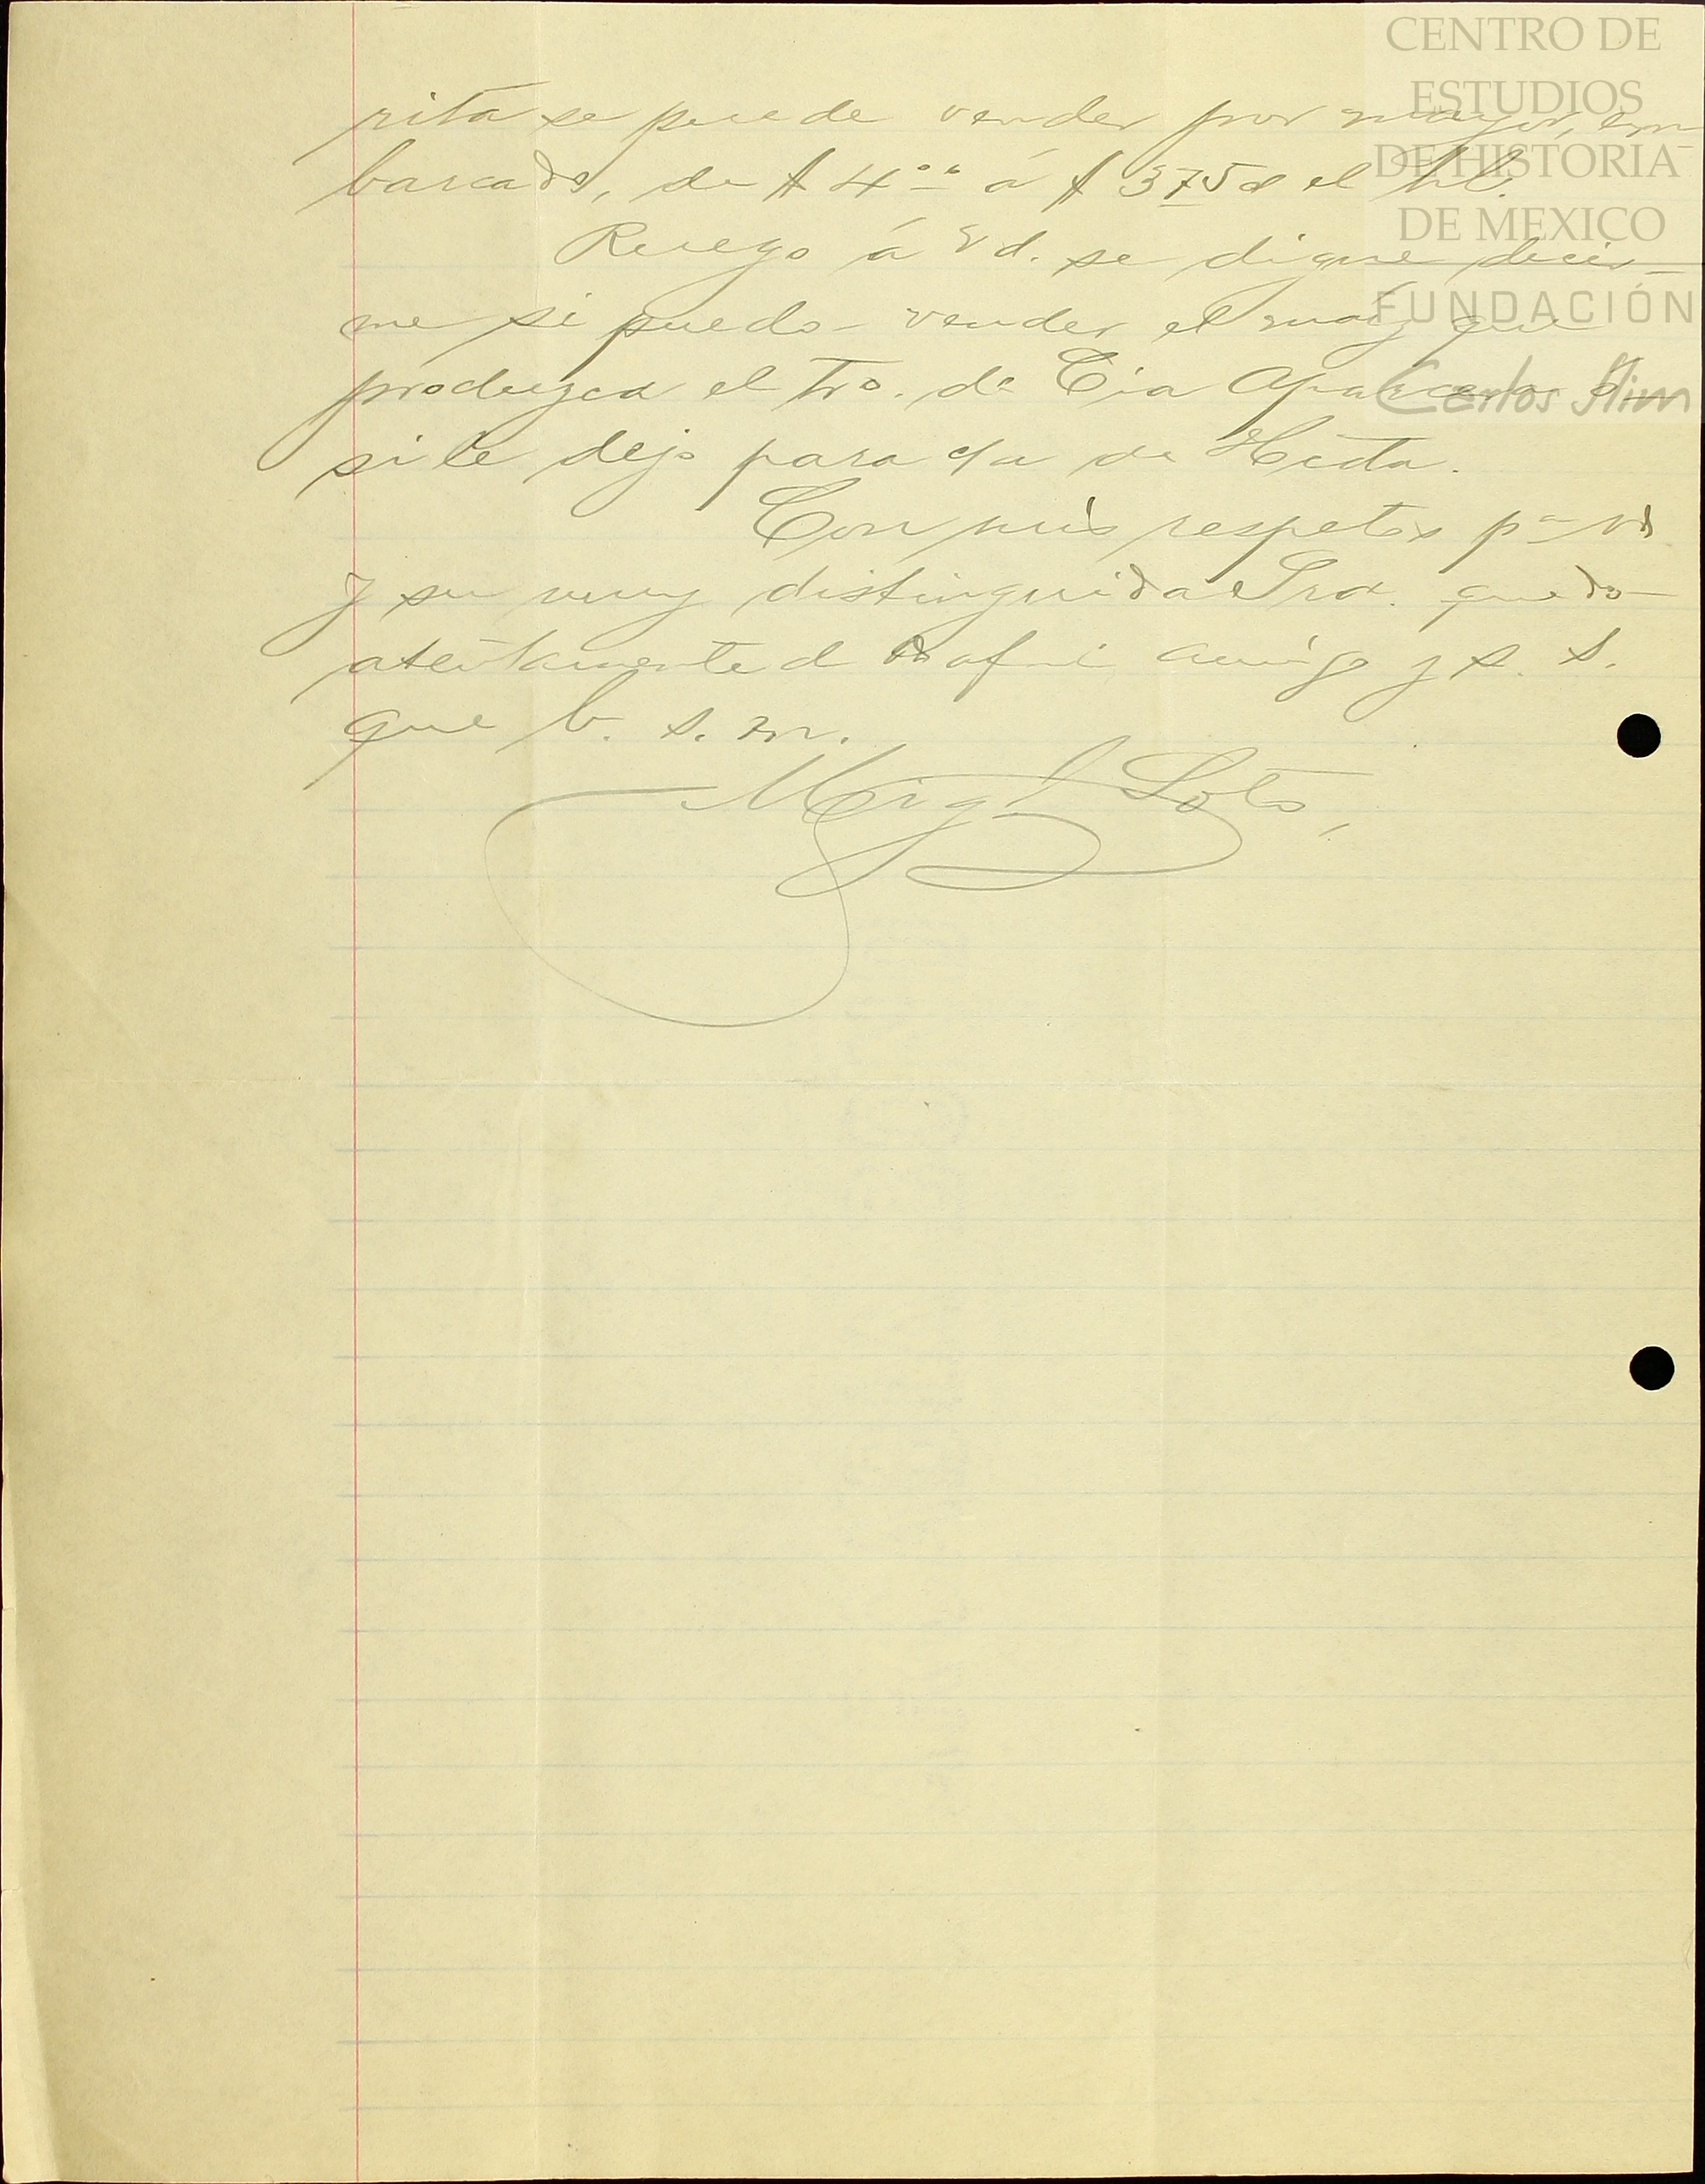 CENTRO DE
ESTUDIOS
DE HISTORIA
DE MEXICO
FUNDACIÓN
Carlos Slim
rita se puede vender por mayor, em-
barcado, de $ 4°° á $ 3.75 el hl.
Ruego á Vd. se digne decir-
me si puedo vender el maíz que
produzca el tro. de Tia Aparcero o
si le dejo para el de Hcda.
Con mis respetos pª Vd
y su muy distinguida Sra. quedo
atentamente afmo amigo y s. s.
que b. s. m.
Migl Soto,